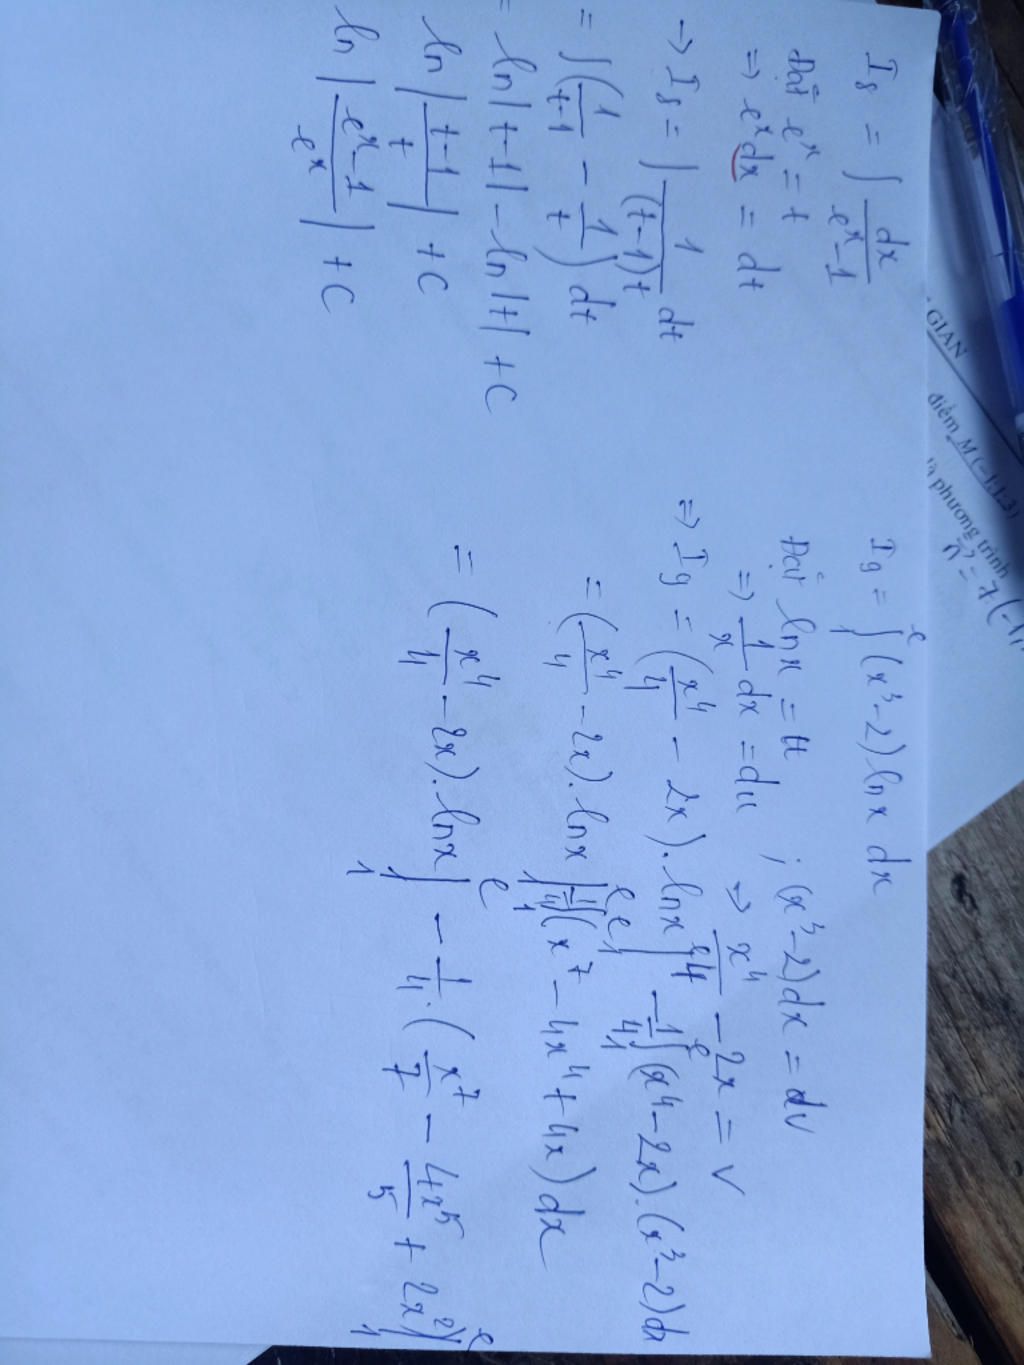 I₈ = ∫ dx/(eˣ-1)
Đặt eˣ = t
=> eˣdx = dt
-> I₈ = ∫ 1/((t-1)t) dt
= ∫ (1/(t-1) - 1/t) dt
= ln|t-1| - ln|t| + C
ln |(t-1)/t| + C
ln |(eˣ-1)/eˣ| + C
I₉ = ∫₁ᵉ (x³-2) ln x dx
Đặt ln x = u ; (x³-2)dx = dv
=> 1/x dx = du => x⁴/4 - 2x = v
=> I₉ = (x⁴/4 - 2x). ln x |₁ᵉ - 1/4 ∫₁ᵉ (x⁴-2x).(x³-2)dx
= (x⁴/4 - 2x). ln x |₁ᵉ - 1/4 ∫₁ᵉ (x⁷ - 4x⁴ + 4x) dx
= (x⁴/4 - 2x). ln x |₁ᵉ - 1/4 . (x⁷/7 - 4x⁵/5 + 2x²)|₁ᵉ
GIAN
điểm M(-1,1,3)
phương trình
n⃗ = 7(-1,